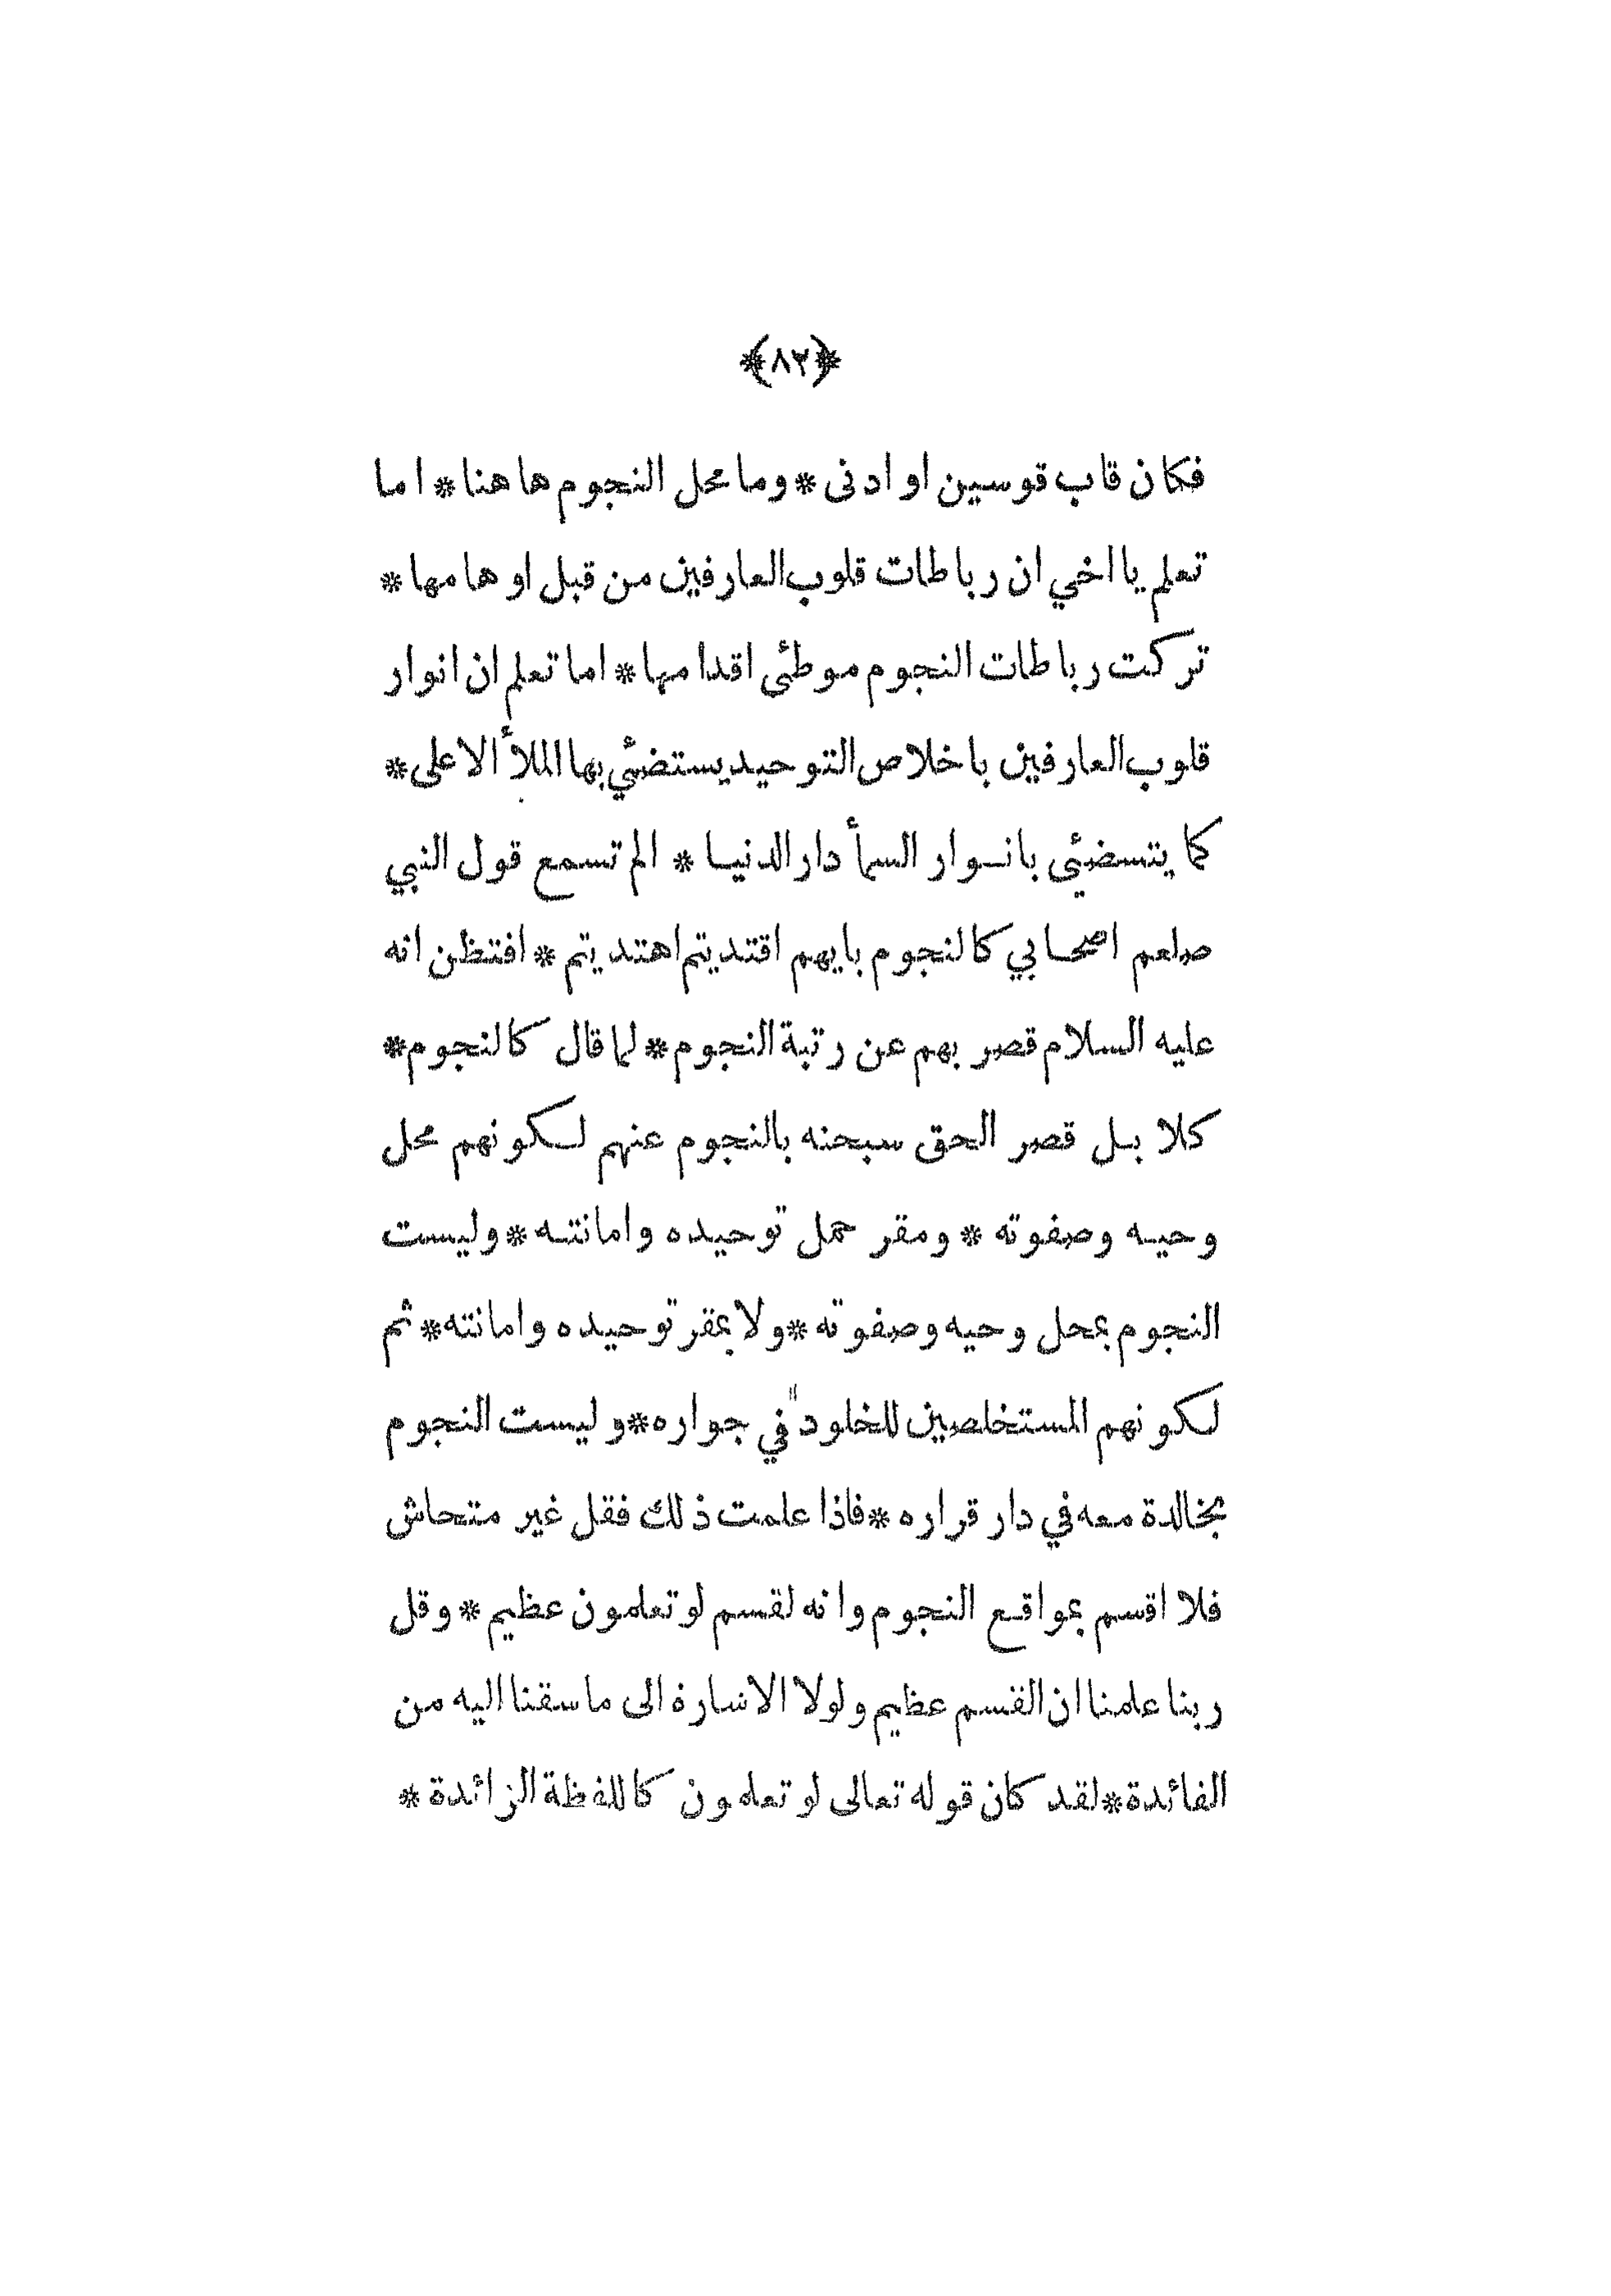 ﴿٨٣﴾
فكان قاب قوسين او ادنى * وما محل النجوم هاهنا * اما
تعلم يا اخي ان رباطات قلوب العارفين من قبل اوهامها *
تركت رباطات النجوم موطئى اقدامها * اما تعلم ان انوار
قلوب العارفين باخلاص التوحيد يستضئي بها الملأ الاعلى *
كما يتسضئي بانوار السمأ دار الدنيا * الم تسمع قول النبي
صلعم اصحابي كالنجوم بايهم اقتديتم اهتديتم * افتظن انه
عليه السلام قصر بهم عن رتبة النجوم * لما قال كالنجوم *
كلا بل قصر الحق سبحنه بالنجوم عنهم لكونهم محل
وحيه وصفوته * ومقر حمل توحيده وامانته * وليست
النجوم بمحل وحيه وصفوته * ولا بمقر توحيده وامانته * ثم
لكونهم المستخلصين للخلود في جواره * وليست النجوم
بخالدة معه في دار قراره * فاذا علمت ذلك فقل غير متحاش
فلا اقسم بمواقع النجوم وانه لقسم لو تعلمون عظيم * وقل
ربنا علمنا ان القسم عظيم ولولا الاشارة الى ما سقنا اليه من
الفائدة * لقد كان قوله تعالى لو تعلمون كاللفظة الزائدة *